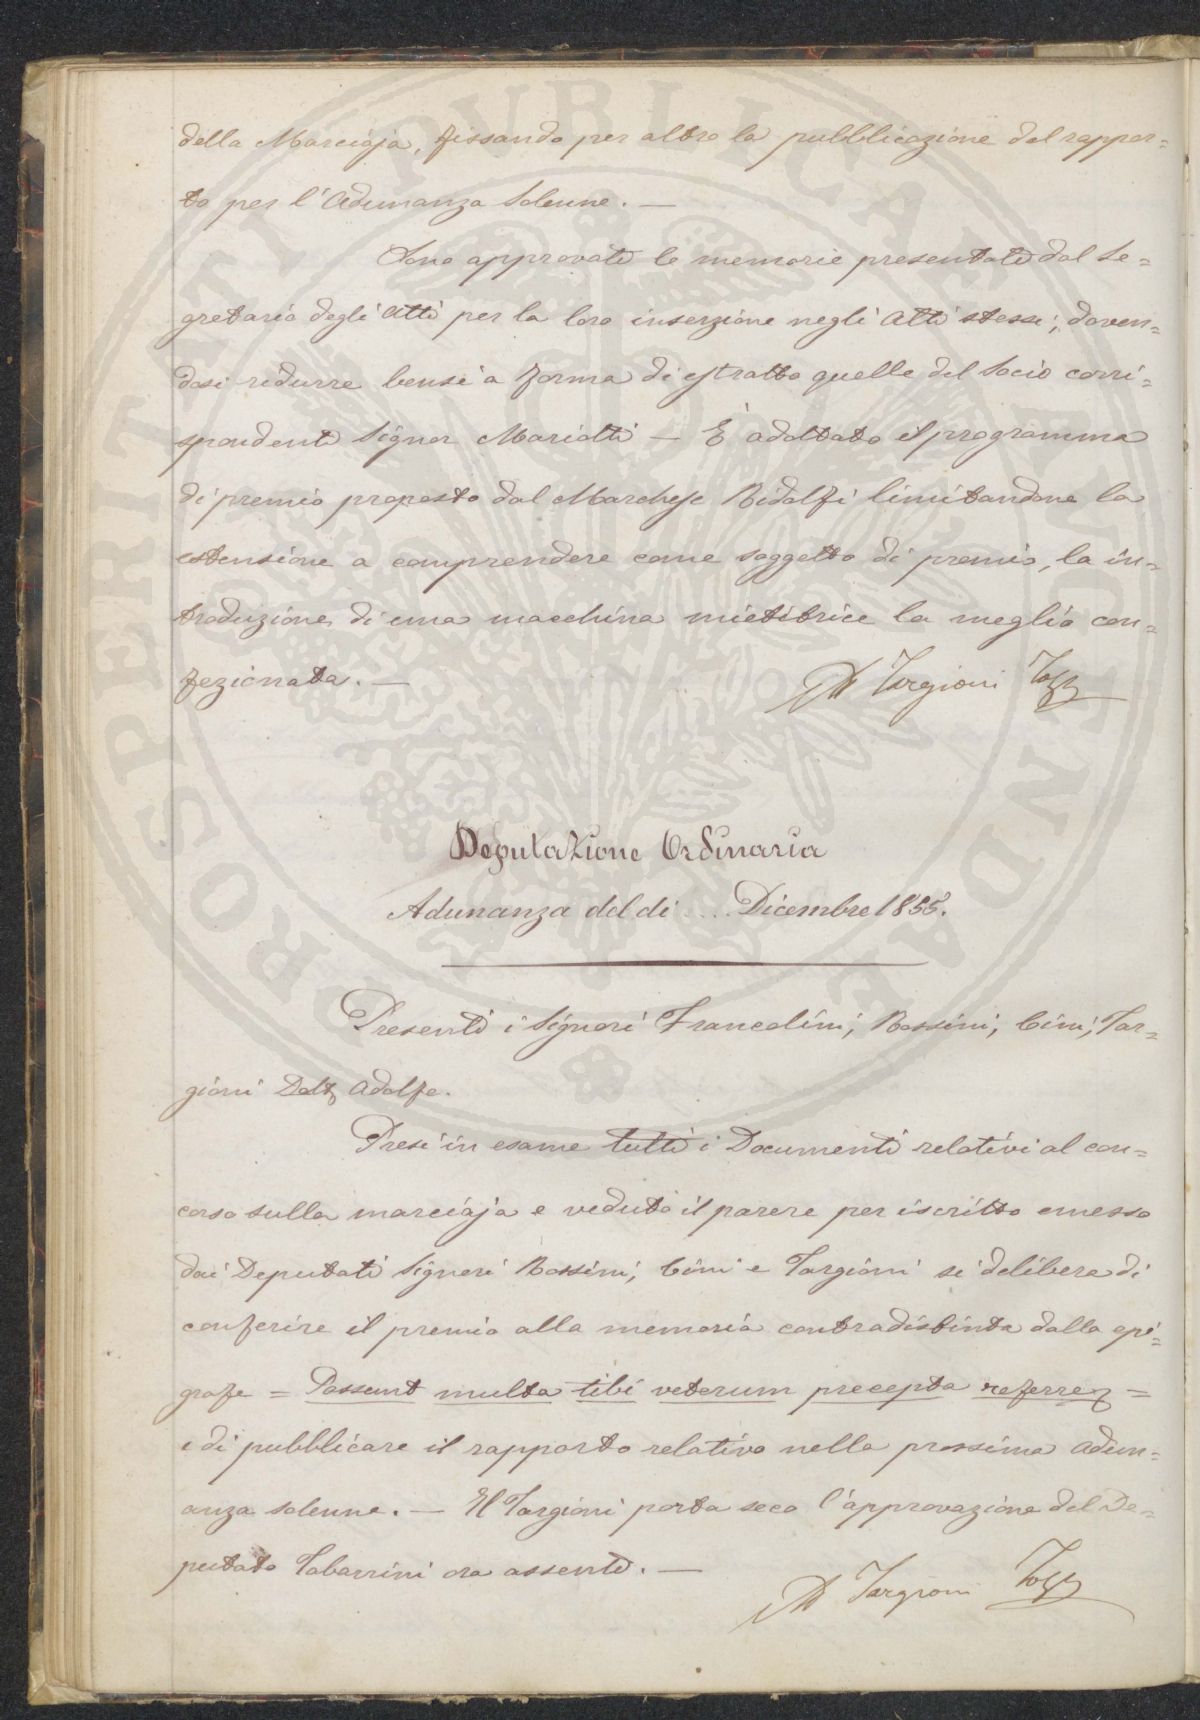 della Marciaja, fissando per altro la pubblicazione del rappor=
to per l'Adunanza Solenne. —
Sono approvate le memorie presentate dal Se=
gretario degli Atti per la loro inserzione negli Atti stessi, doven=
dosi ridurre bensì a forma di estratto quelle del Socio corri=
spondente Signor Mariotti — È adottato il programma
di premio proposto dal Marchese Ridolfi limitandone la
estensione a comprendere come soggetto di premio, la in=
troduzione di una macchina mietitrice la meglio con=
fezionata. —
A Targioni Tozz
Deputazione Ordinaria
Adunanza del dì .... Dicembre 1855.
Presenti i Signori Francolini, Bossini, Cini, Tar=
gioni Adolfo.
Presi in esame tutti i Documenti relativi al con=
corso sulla marciaja e veduto il parere per iscritto emesso
dai Deputati Signori Bossini, Cini e Targioni si delibera di
conferire il premio alla memoria contradistinta dalla epi=
grafe = Possunt multa tibi veterum precepta referre =
e di pubblicare il rapporto relativo nella prossima adun=
anza solenne. — Il Targioni porta seco l'approvazione del De=
putato Tabarrini ora assente. —
A Targioni Tozz
PROSPERITATI PVBLICAE AVGENDAE